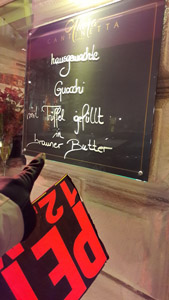 hausgemachte
Gnocchi
mit Trüffel gefüllt
in
brauner Butter
PE
12.